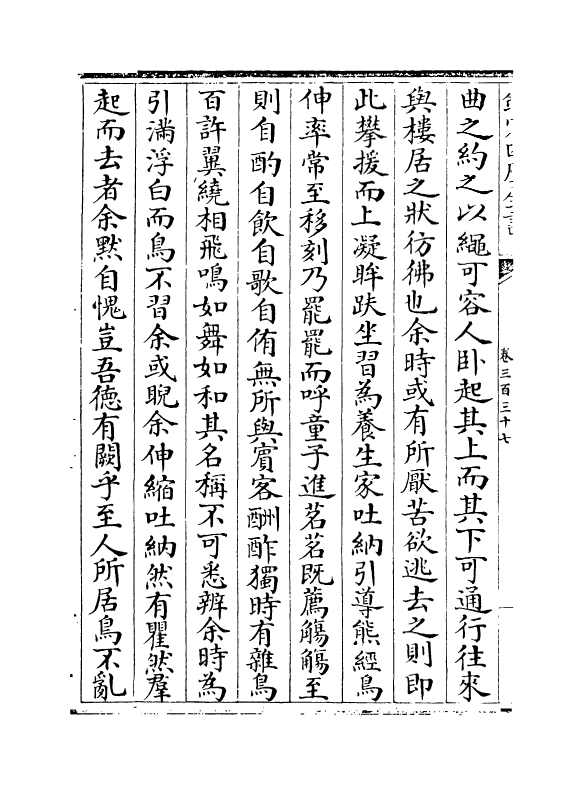 欽定四庫全書
卷三百三十七
曲之約之以繩可容人卧起其上而其下可通行往來
與樓居之狀彷彿也余時或有所厭苦欲逃去之則即
此攀援而上凝眸趺坐習為養生家吐納引導熊經鳥
伸率常至移刻乃罷罷而呼童子進茗茗既薦觴觴至
則自酌自飲自歌自侑無所與賓客酬酢獨時有雜鳥
百許翼繞相飛鳴如舞如和其名稱不可悉辨余時為
引滿浮白而鳥不習余或睨余伸縮吐納然有瞿然羣
起而去者余默自愧豈吾徳有闕乎至人所居鳥不亂